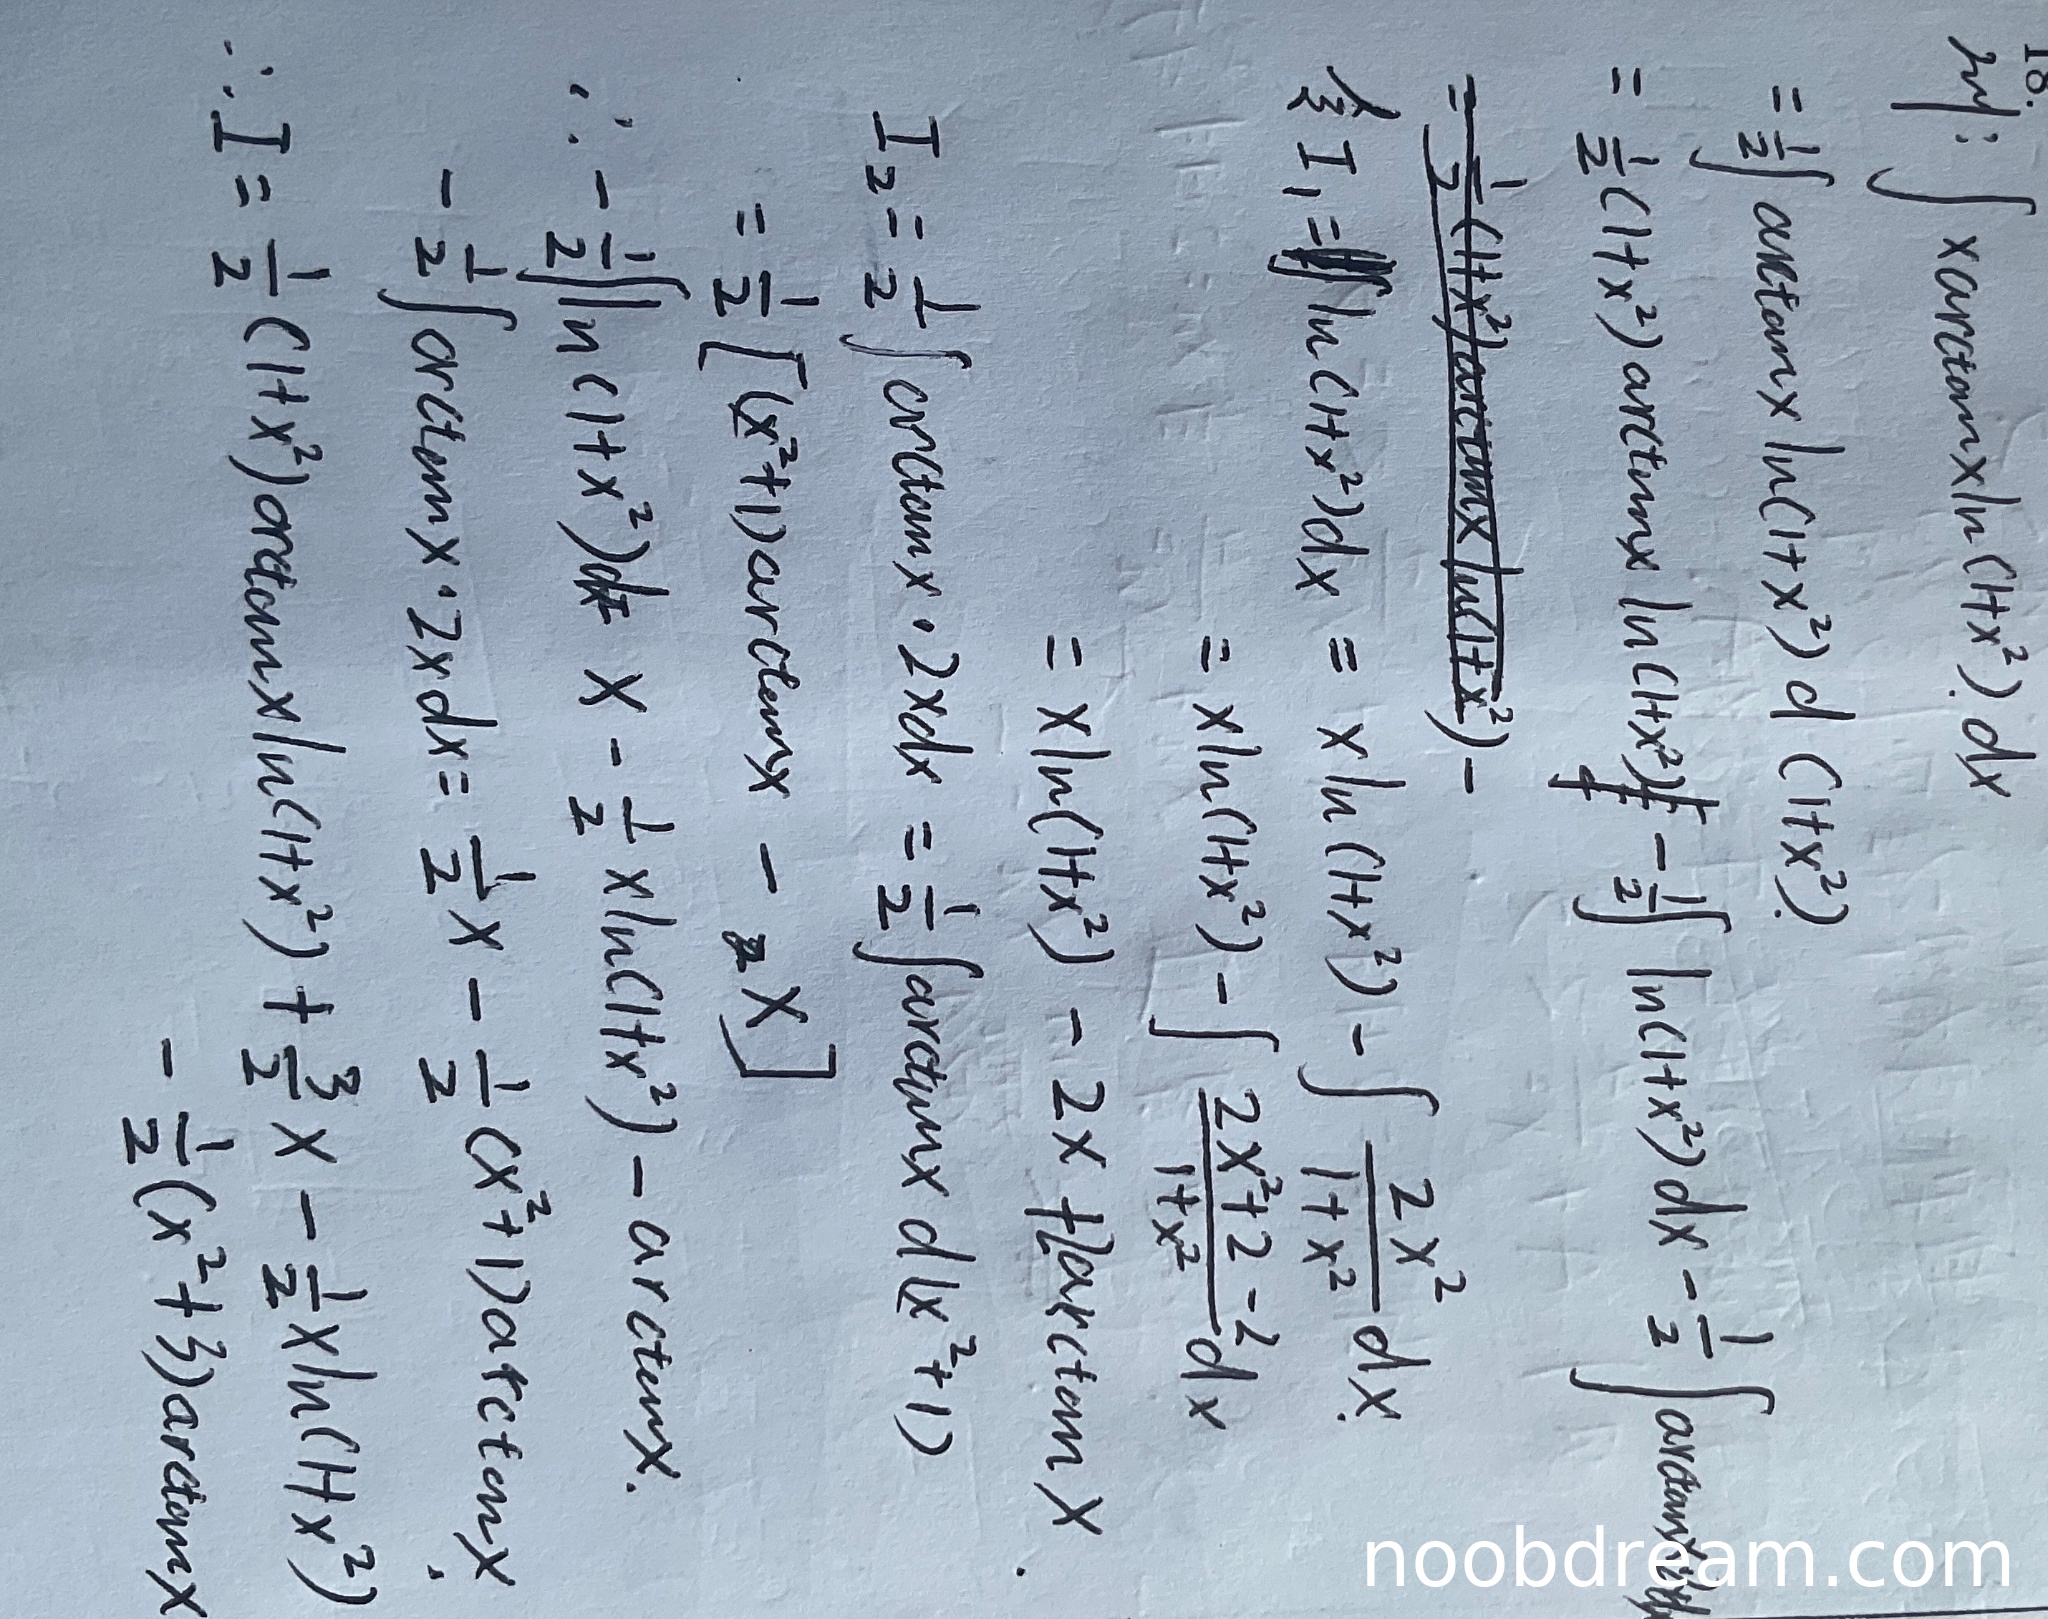 18.
解: ∫ x arctanx ln(1+x²) dx
= 1/2 ∫ arctanx ln(1+x²) d(1+x²)
= 1/2 (1+x²) arctanx ln(1+x²) - 1/2 ∫ ln(1+x²) dx - 1/2 ∫ arctanx·2xdx
= 1/2 (1+x²) arctanx ln(1+x²) -
令 I₁ = ∫ ln(1+x²) dx = x ln(1+x²) - ∫ 2x²/(1+x²) dx.
= x ln(1+x²) - ∫ (2x²+2-2)/(1+x²) dx
= x ln(1+x²) - 2x + 2arctanx.
I₂ = 1/2 ∫ arctanx·2xdx = 1/2 ∫ arctanx d(x²+1)
= 1/2 [(x²+1) arctanx - x]
∴ - 1/2 ∫ ln(1+x²) dx = x - 1/2 x ln(1+x²) - arctanx.
- 1/2 ∫ arctanx·2xdx = 1/2 x - 1/2 (x²+1) arctanx.
∴ I = 1/2 (1+x²) arctanx ln(1+x²) + 3/2 x - 1/2 x ln(1+x²)
- 1/2 (x²+3) arctanx
noobdream.com